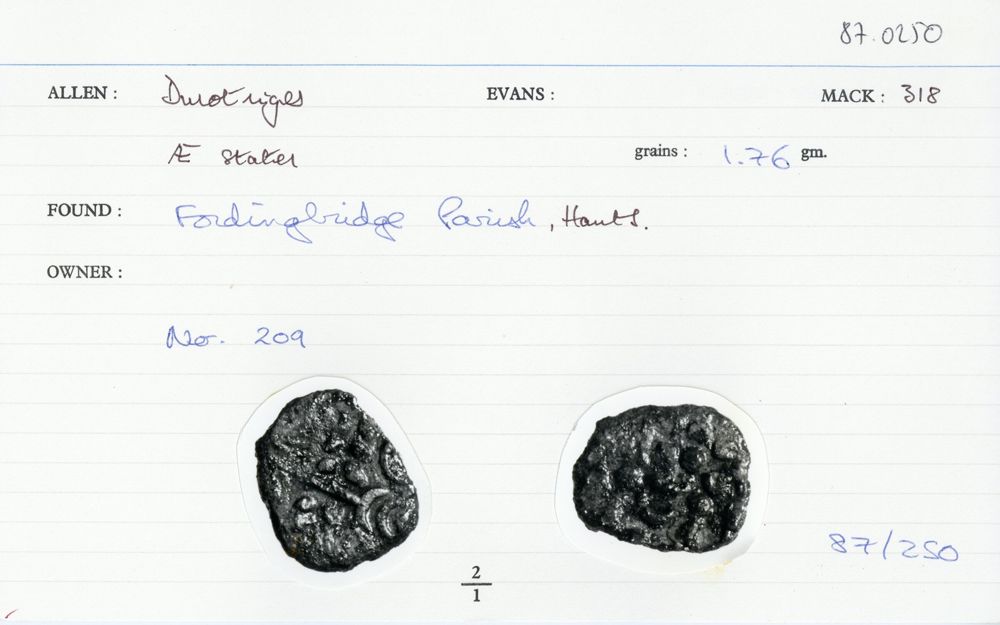 87.0250
ALLEN : Durotriges EVANS : MACK : 318
Æ stater grains : 1.76 gm.
FOUND : Fordingbridge Parish, Hants.
OWNER :
No. 209
87/250
2
1